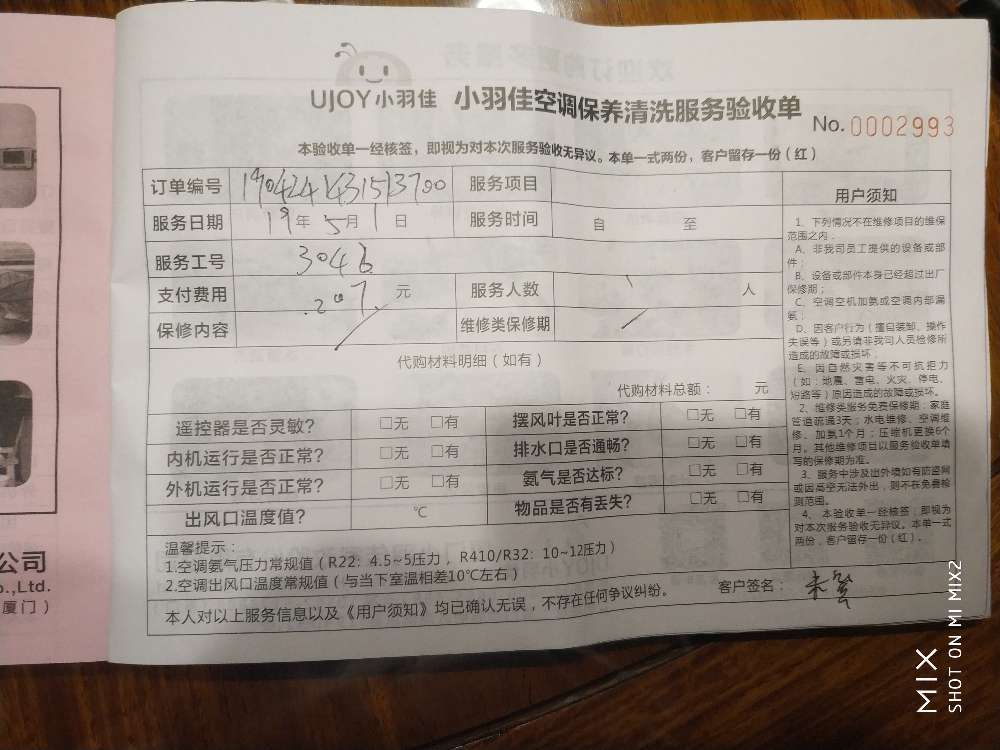 UJOY小羽佳 小羽佳空调保养清洗服务验收单
No. 0002993
本验收单一经核签，即视为对本次服务验收无异议。本单一式两份，客户留存一份（红）
订单编号 1904241431513700 服务项目
服务日期 19年5月1日 服务时间 自 至
服务工号 3046
支付费用 207. 元 服务人数 人
保修内容 维修类保修期
代购材料明细（如有）
代购材料总额： 元
遥控器是否灵敏？ □无 □有 摆风叶是否正常？ □无 □有
内机运行是否正常？ □无 □有 排水口是否通畅？ □无 □有
外机运行是否正常？ □无 □有 氨气是否达标？ □无 □有
出风口温度值？ ℃ 物品是否有丢失？ □无 □有
温馨提示：
1.空调氨气压力常规值（R22：4.5~5压力，R410/R32：10~12压力）
2.空调出风口温度常规值（与当下室温相差10℃左右）
本人对以上服务信息以及《用户须知》均已确认无误，不存在任何争议纠纷。 客户签名：
用户须知
1、下列情况不在维修项目的维保
范围之内：
A、非我司员工提供的设备或部
件；
B、设备或部件本身已经超过出厂
保修期；
C、空调空机加氨或空调内部漏
氨；
D、因客户行为（擅自装卸、操作
失误等）或另请非我司人员检修所
造成的故障或损坏；
E、因自然灾害等不可抗拒力
（如：地震、雷电、火灾、停电、
短路等）原因造成的故障或损坏。
2、维修类服务免费保修期：家庭
管道疏通3天；水电维修、空调维
修、加氨1个月；压缩机更换6个
月。其他维修项目以服务验收单填
写的保修期为准。
3、服务中涉及出外墙如有防盗网
或因高空无法外出，则不在免费检
测范围。
4、本验收单一经核签，即视为
对本次服务验收无异议。本单一式
两份，客户留存一份（红）。
公司
o.,Ltd.
厦门）
MIX
SHOT ON MI MIX2